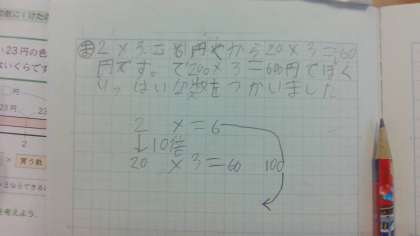 い23円の色
はいくらです
23円
2
買う数
を考えよう。
ま 2×3=6円だから20×3=60
円です。で200×3=600円でぼく
いっぱいな数をつかいました
2 ×=6
↓10倍
20 ×3=60 100